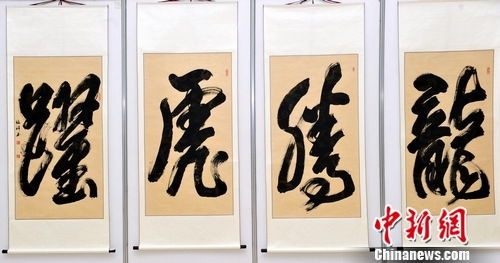 龍騰虎躍
中新網
Chinanews.com